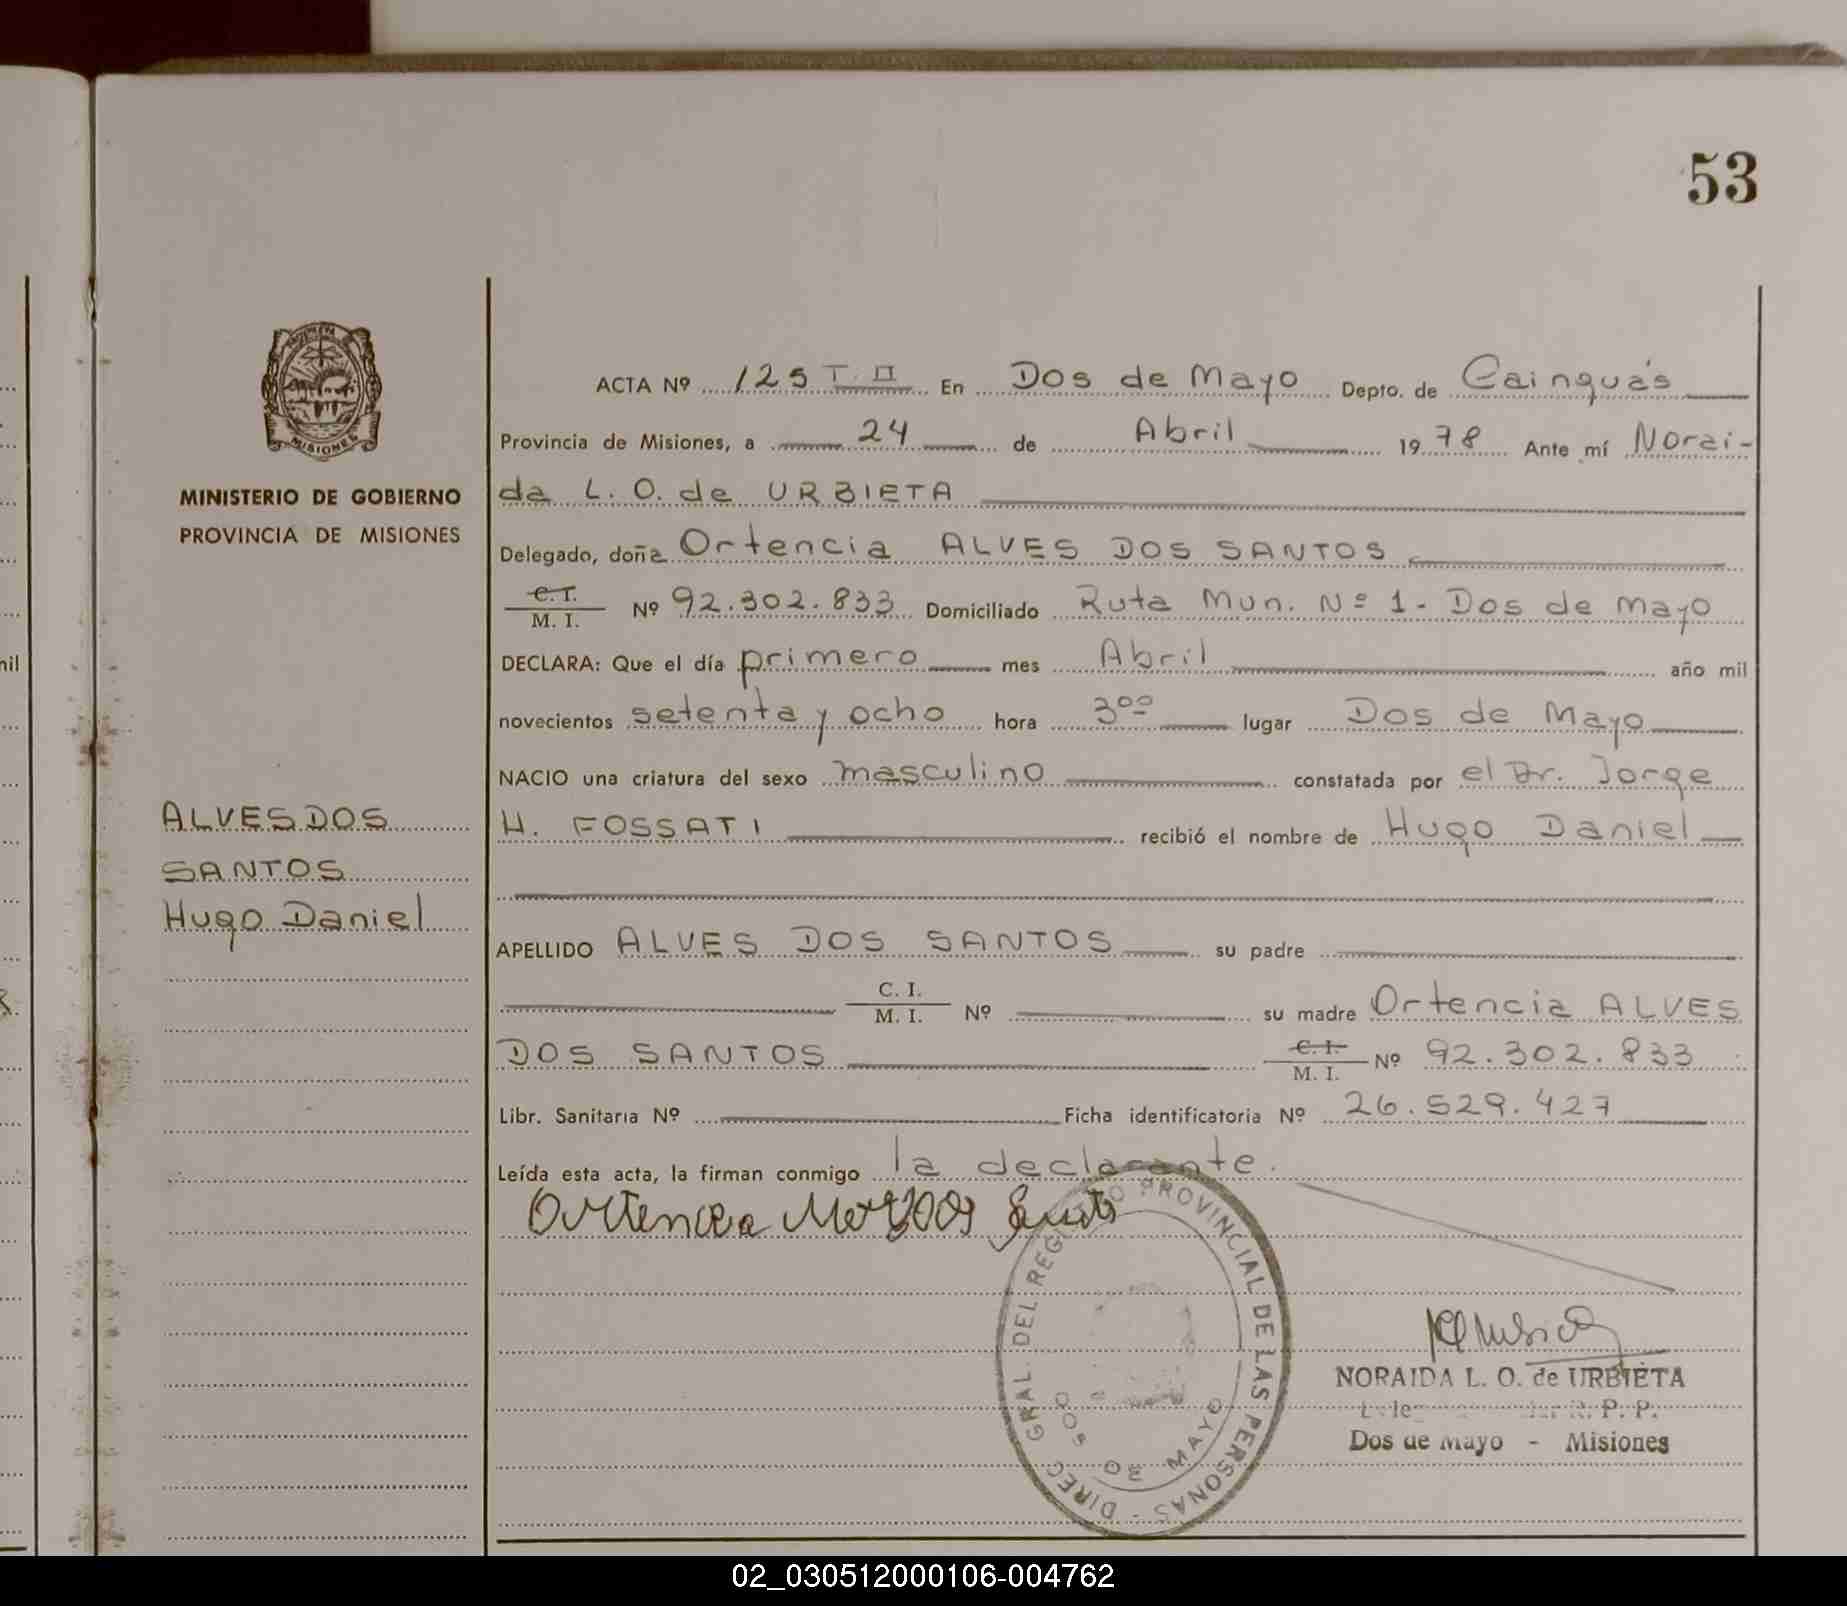 53
MISIONES
MINISTERIO DE GOBIERNO
PROVINCIA DE MISIONES
ALVES DOS
SANTOS
Hugo Daniel
ACTA Nº 125 T. II En Dos de Mayo Depto. de Cainguás
Provincia de Misiones, a 24 de Abril 1978 Ante mí Norai-
da L. O. de URBIETA
Delegado, doña Ortencia ALVES DOS SANTOS
C. I.
M. I. Nº 92.302.833 Domiciliado Ruta Mun. Nº 1 - Dos de Mayo
DECLARA: Que el día primero mes Abril año mil
novecientos setenta y ocho hora 3⁰⁰ lugar Dos de Mayo
NACIO una criatura del sexo masculino constatada por el Dr. Jorge
H. FOSSATI recibió el nombre de Hugo Daniel
APELLIDO ALVES DOS SANTOS su padre
C. I.
M. I. Nº su madre Ortencia ALVES
DOS SANTOS C. I.
M. I. Nº 92.302.833
Libr. Sanitaria Nº Ficha identificatoria Nº 26.529.427
Leída esta acta, la firman conmigo la declarante.
DIREC GRAL DEL REGISTRO PROVINCIAL DE LAS PERSONAS -
DOS DE MAYO
NORAIDA L. O. de URBIETA
R. P. P.
Dos de Mayo - Misiones
02_030512000106-004762